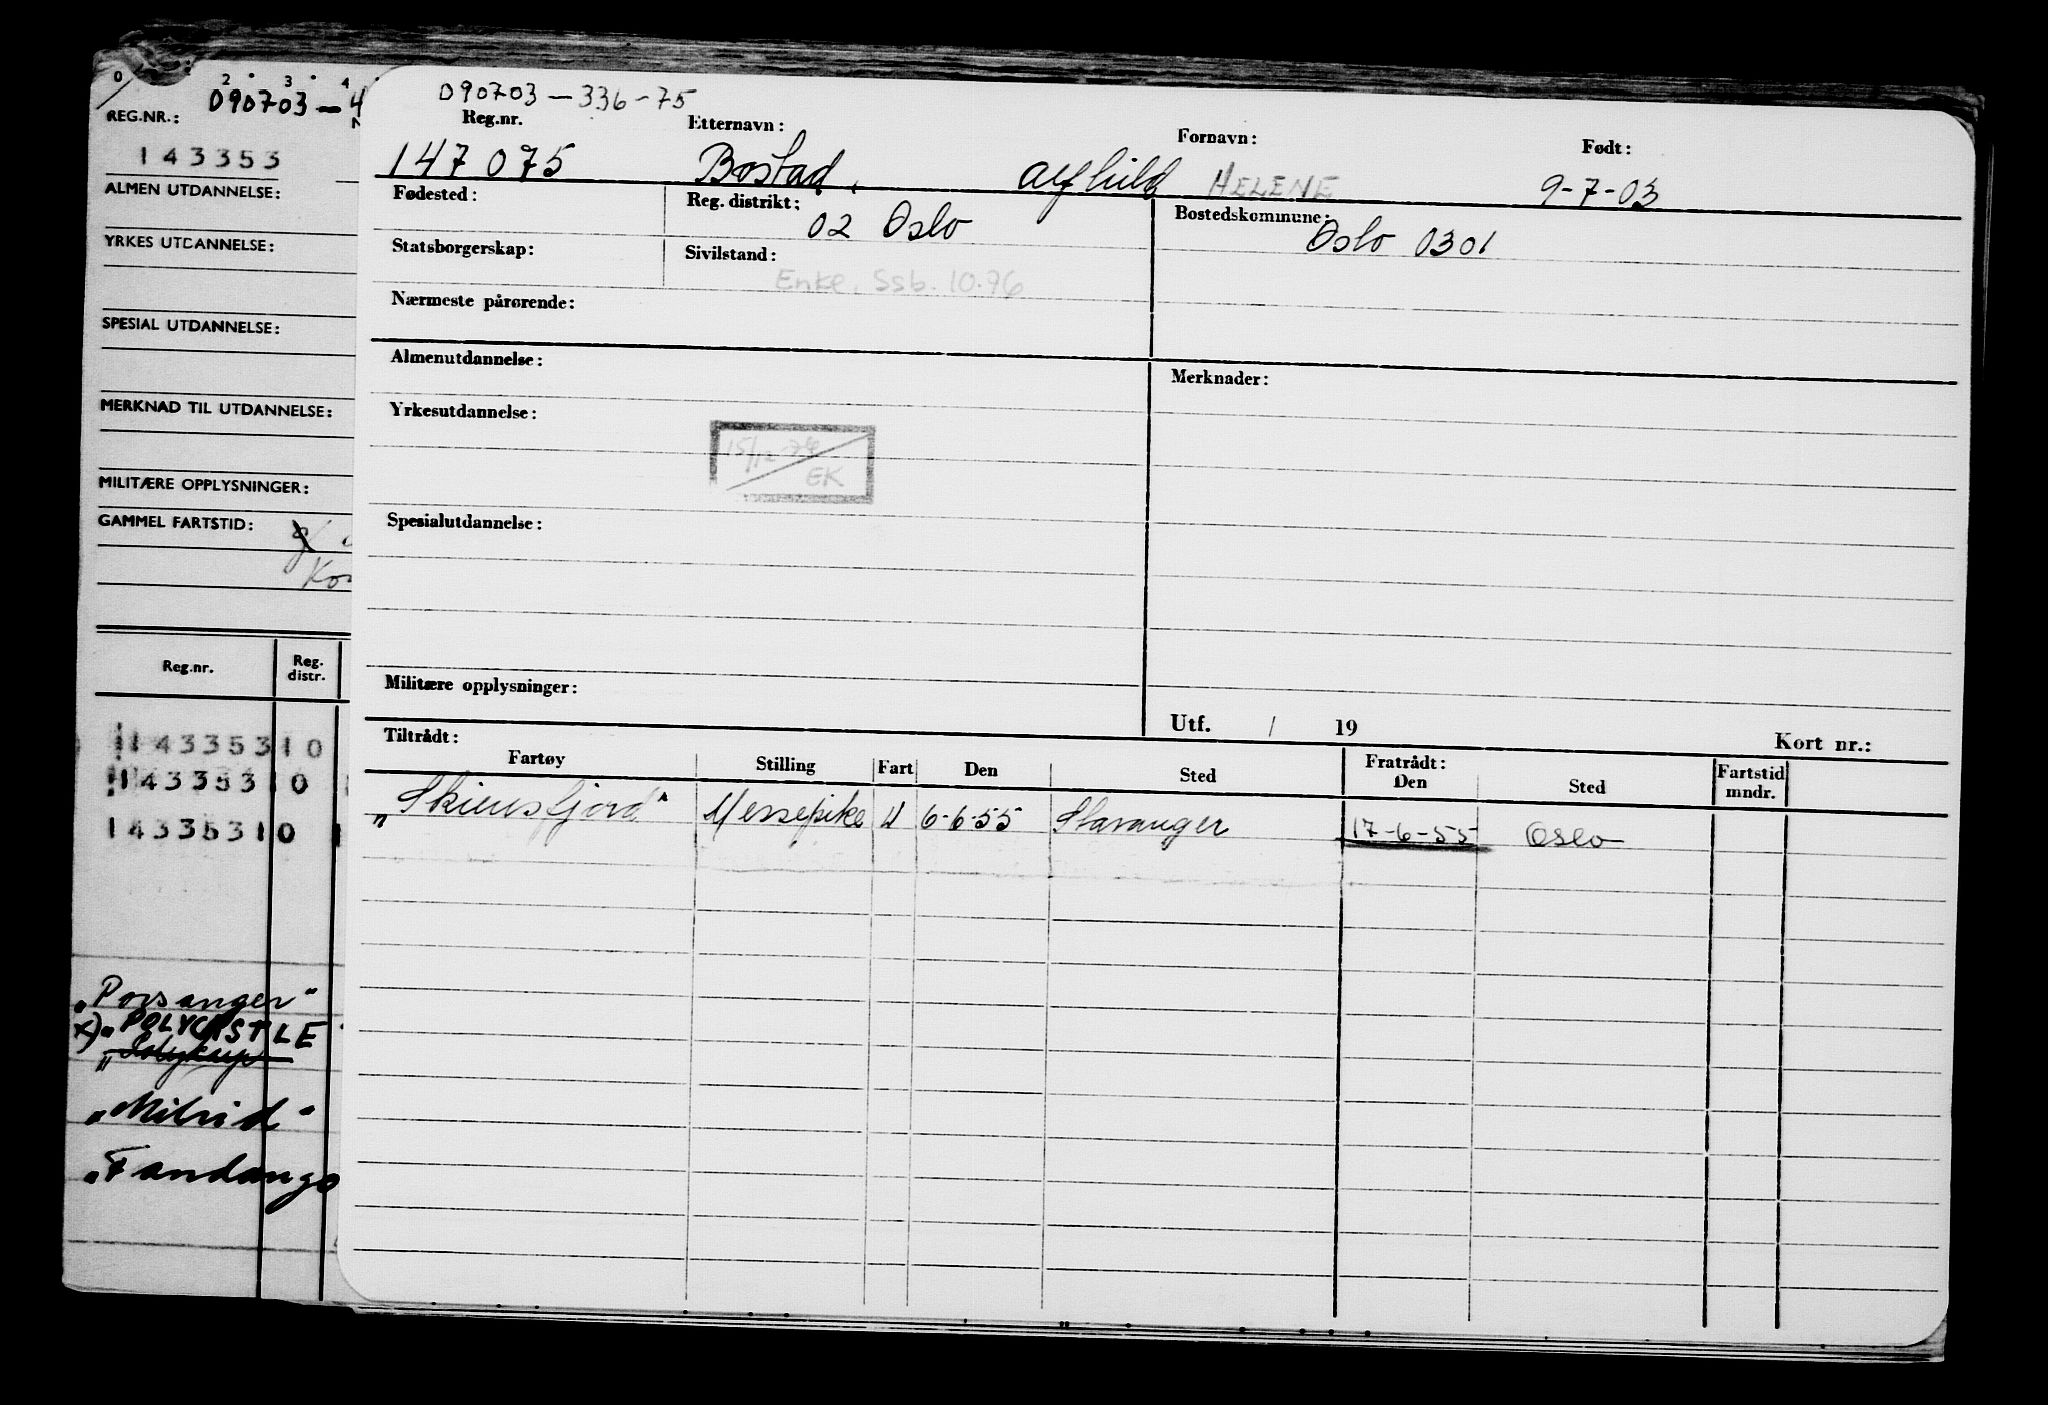 0 2 3 4
REG.NR.: 090703-4
143353
ALMEN UTDANNELSE:
YRKES UTDANNELSE:
SPESIAL UTDANNELSE:
MERKNAD TIL UTDANNELSE:
MILITÆRE OPPLYSNINGER:
GAMMEL FARTSTID:
Reg.nr. Reg. distr.
143353 10
143353 10
143353 10
"Porsanger"
x) "POLYCASTLE"
"Polykarp"
"Milrid"
"Fandango
090703-336-75
Reg.nr. Etternavn: Fornavn: Født:
147075 Bostad, Alfhild HELENE 9-7-03
Fødested: Reg. distrikt: 02 Oslo Bostedskommune: Oslo 0301
Statsborgerskap: Sivilstand: Enke. Ssb. 10.76
Nærmeste pårørende:
Almenutdannelse: Merknader:
Yrkesutdannelse:
15/12-74
EK
Spesialutdannelse:
Militære opplysninger:
Utf. / 19 Kort nr.:
Tiltrådt: Fratrådt:
Fartøy Stilling Fart Den Sted Den Sted Fartstid mndr.
"Skiensfjord" Messepike U 6-6-55 Stavanger 17-6-55 Oslo